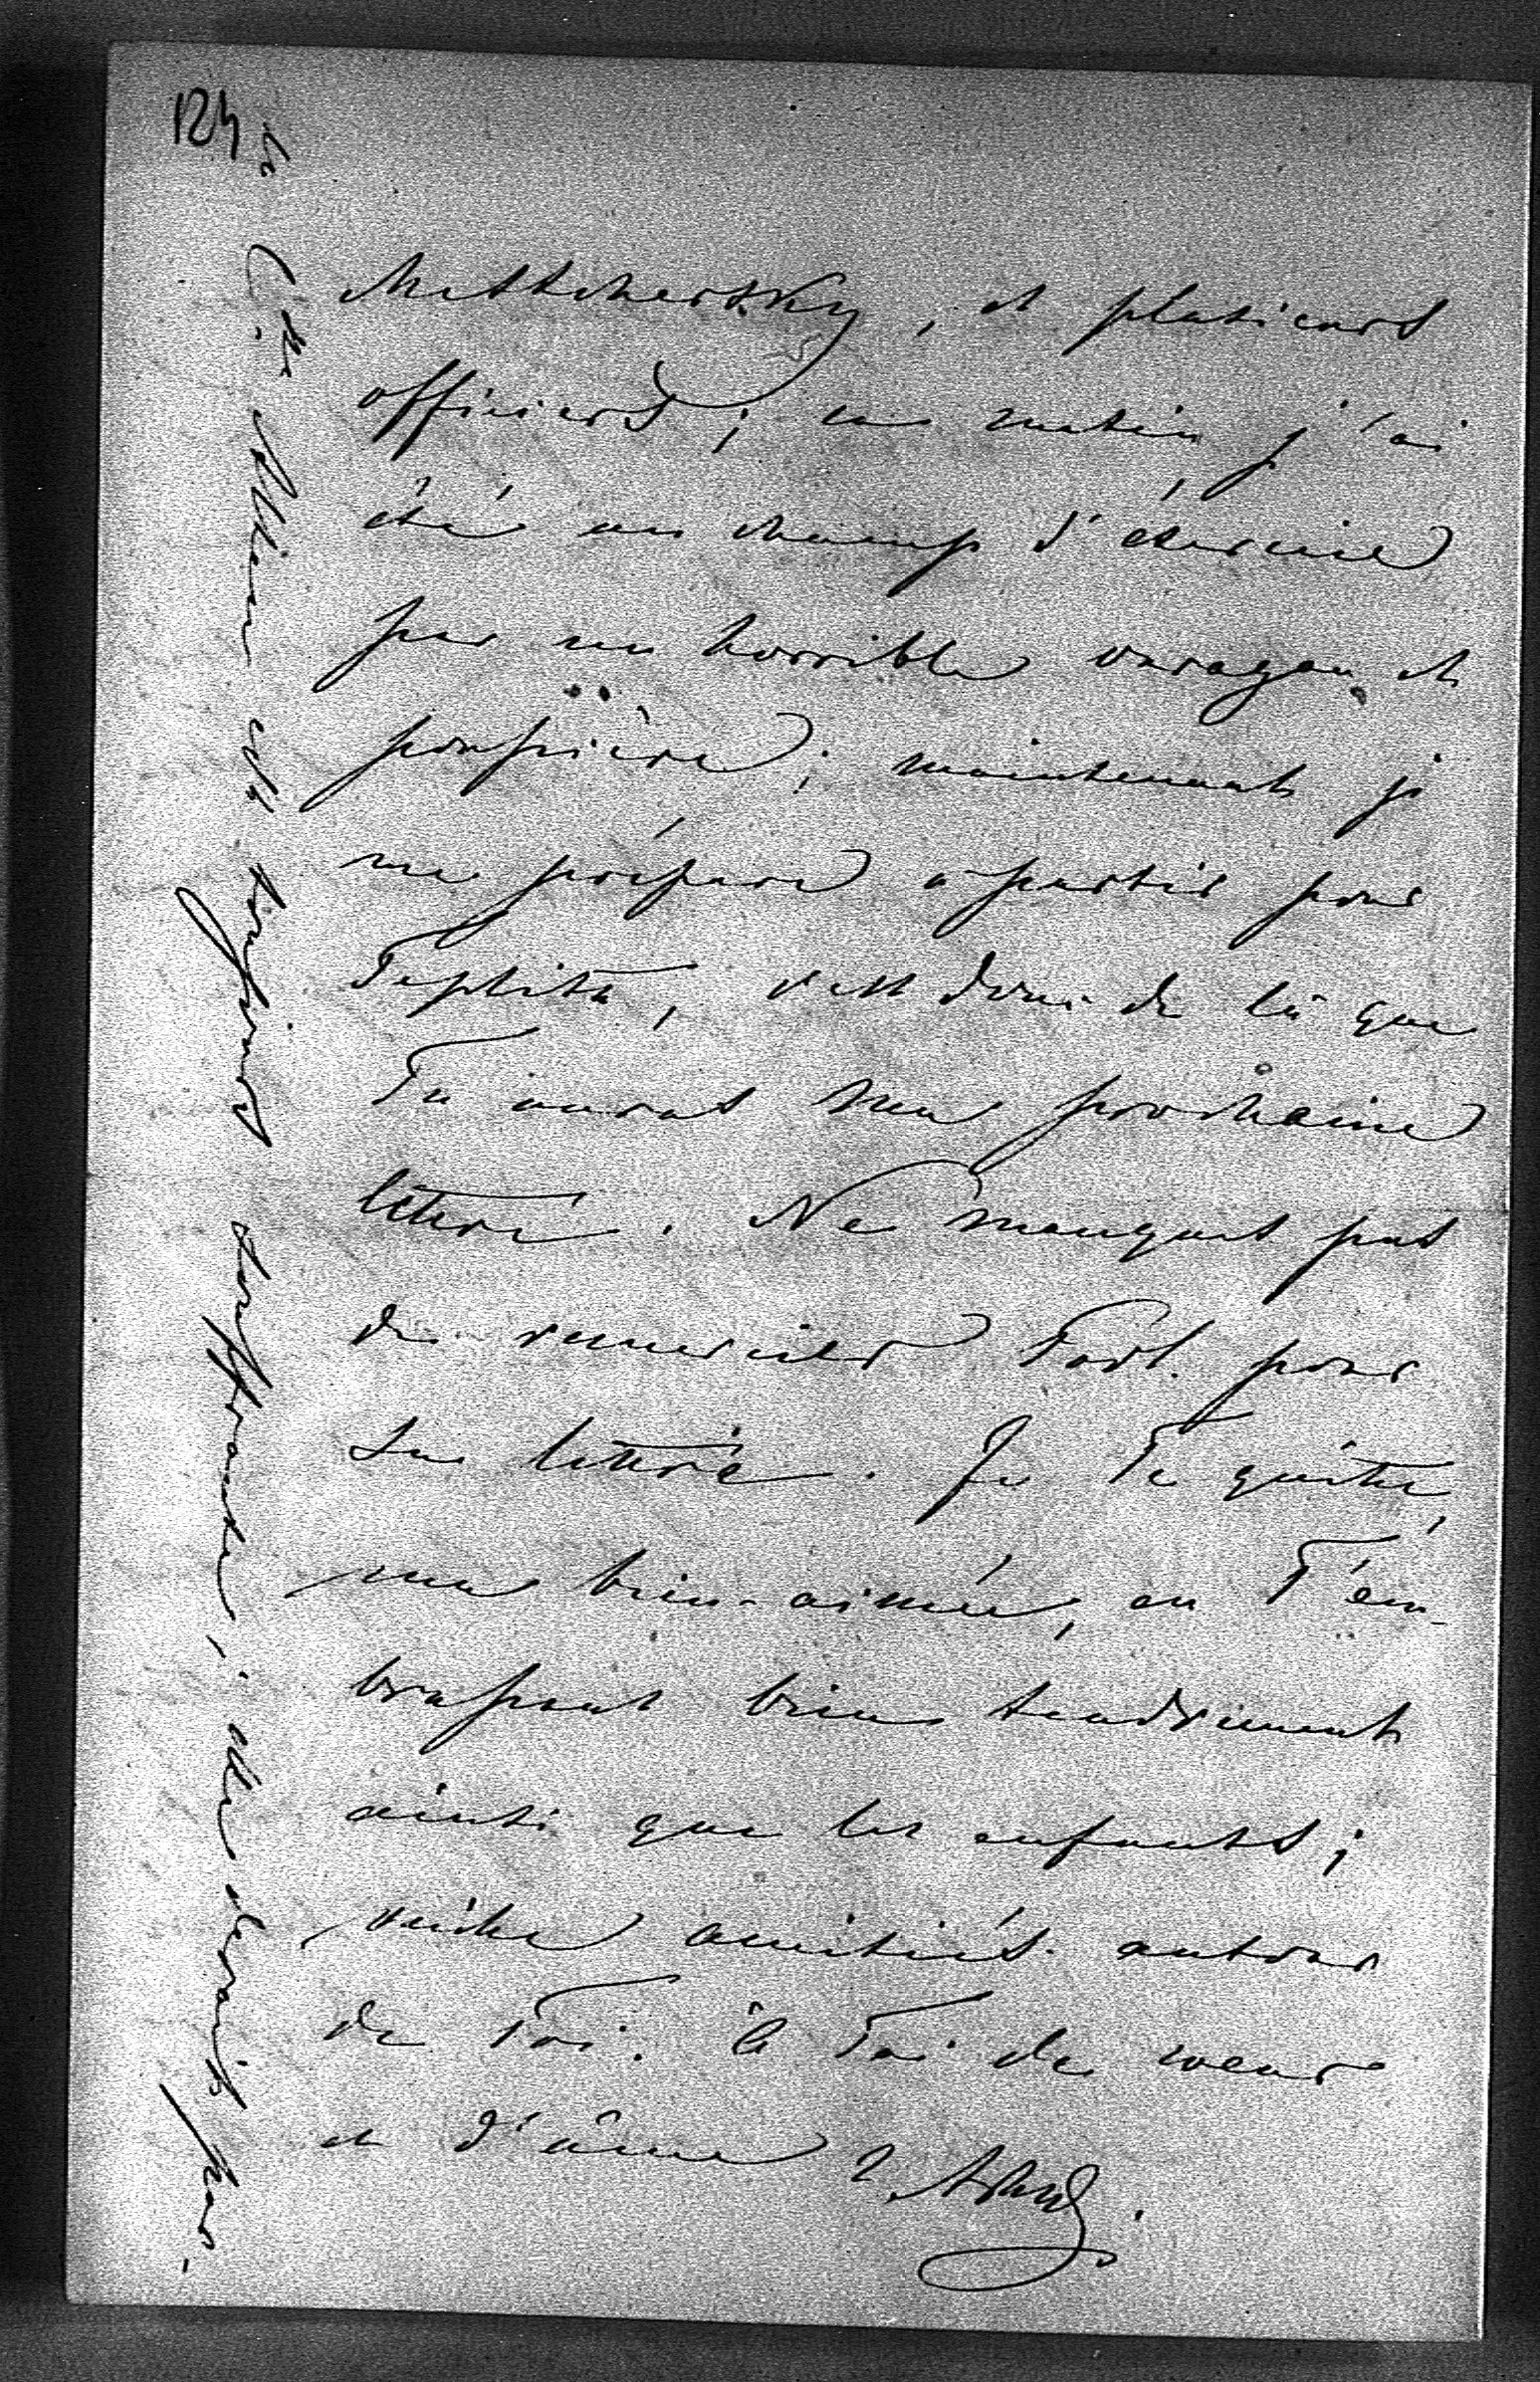 124
Mestchersky, et plusieurs
officiers; ce matin j'ai
été au champ d'exercice
par un horrible ouragan et
poussière; maintenant je
me prépare à partir pour
Teplitz, c'est donc de là que
Tu auras ma prochaine
lettre. Ne manques pas
de remercier pour
sa lettre. Je Te quitte,
ma bien-aimée, en T'em-
brassant bien tendrement
ainsi que les enfants;
mille amitiés autour
de Toi. à Toi de cœur
et d'âme
la Ctsse est toujours souffrante; elle devait par-